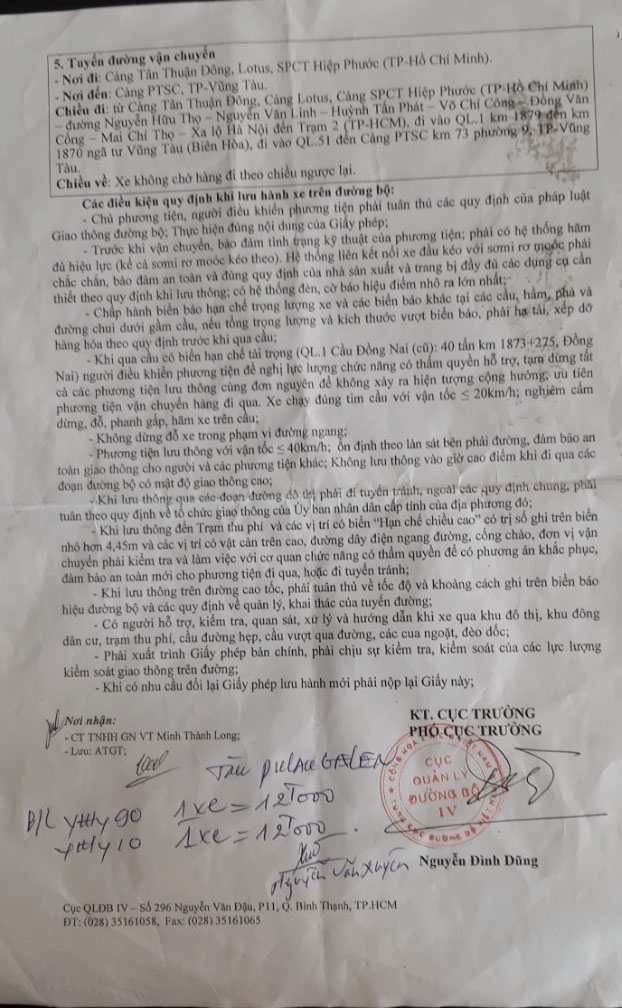 5. Tuyến đường vận chuyển
- Nơi đi: Cảng Tân Thuận Đông, Lotus, SPCT Hiệp Phước (TP-Hồ Chí Minh).
- Nơi đến: Cảng PTSC, TP-Vũng Tàu.
Chiều đi: từ Cảng Tân Thuận Đông, Cảng Lotus, Cảng SPCT Hiệp Phước (TP-Hồ Chí Minh)
– đường Nguyễn Hữu Thọ – Nguyễn Văn Linh – Huỳnh Tấn Phát – Võ Chí Công – Đồng Văn
Cống – Mai Chí Thọ – Xa lộ Hà Nội đến Trạm 2 (TP-HCM), đi vào QL.1 km 1879 đến km
1870 ngã tư Vũng Tàu (Biên Hòa), đi vào QL.51 đến Cảng PTSC km 73 phường 9, TP-Vũng
Tàu.
Chiều về: Xe không chở hàng đi theo chiều ngược lại.
Các điều kiện quy định khi lưu hành xe trên đường bộ:
- Chủ phương tiện, người điều khiển phương tiện phải tuân thủ các quy định của pháp luật
Giao thông đường bộ; Thực hiện đúng nội dung của Giấy phép;
- Trước khi vận chuyển, bảo đảm tình trạng kỹ thuật của phương tiện; phải có hệ thống hãm
đủ hiệu lực (kể cả sơmi rơ moóc kéo theo). Hệ thống liên kết nối xe đầu kéo với sơmi rơ moóc phải
chắc chắn, bảo đảm an toàn và đúng quy định của nhà sản xuất và trang bị đầy đủ các dụng cụ cần
thiết theo quy định khi lưu thông; có hệ thống đèn, cờ báo hiệu điểm nhô ra lớn nhất;
- Chấp hành biển báo hạn chế trọng lượng xe và các biển báo khác tại các cầu, hầm, phà và
đường chui dưới gầm cầu, nếu tổng trọng lượng và kích thước vượt biển báo, phải hạ tải, xếp dỡ
hàng hóa theo quy định trước khi qua cầu;
- Khi qua cầu có biển hạn chế tải trọng (QL.1 Cầu Đồng Nai (cũ): 40 tấn km 1873+275, Đồng
Nai) người điều khiển phương tiện đề nghị lực lượng chức năng có thẩm quyền hỗ trợ, tạm dừng tất
cả các phương tiện lưu thông cùng đơn nguyên để không xảy ra hiện tượng cộng hưởng, ưu tiên
phương tiện vận chuyển hàng đi qua. Xe chạy đúng tim cầu với vận tốc ≤ 20km/h; nghiêm cấm
dừng, đỗ, phanh gấp, hãm xe trên cầu;
- Không dừng đỗ xe trong phạm vi đường ngang;
- Phương tiện lưu thông với vận tốc ≤ 40km/h; ổn định theo làn sát bên phải đường, đảm bảo an
toàn giao thông cho người và các phương tiện khác; Không lưu thông vào giờ cao điểm khi đi qua các
đoạn đường bộ có mật độ giao thông cao;
- Khi lưu thông qua các đoạn đường đô thị phải đi tuyến tránh, ngoài các quy định chung, phải
tuân theo quy định về tổ chức giao thông của Ủy ban nhân dân cấp tỉnh của địa phương đó;
- Khi lưu thông đến Trạm thu phí và các vị trí có biển “Hạn chế chiều cao” có trị số ghi trên biển
nhỏ hơn 4,45m và các vị trí có vật cản trên cao, đường dây điện ngang đường, cổng chào, đơn vị vận
chuyển phải kiểm tra và làm việc với cơ quan chức năng có thẩm quyền để có phương án khắc phục,
đảm bảo an toàn mới cho phương tiện đi qua, hoặc đi tuyến tránh;
- Khi lưu thông trên đường cao tốc, phải tuân thủ về tốc độ và khoảng cách ghi trên biển báo
hiệu đường bộ và các quy định về quản lý, khai thác của tuyến đường;
- Có người hỗ trợ, kiểm tra, quan sát, xử lý và hướng dẫn khi xe qua khu đô thị, khu đông
dân cư, trạm thu phí, cầu đường hẹp, cầu vượt qua đường, các cua ngoặt, đèo dốc;
- Phải xuất trình Giấy phép bản chính, phải chịu sự kiểm tra, kiểm soát của các lực lượng
kiểm soát giao thông trên đường;
- Khi có nhu cầu đổi lại Giấy phép lưu hành mới phải nộp lại Giấy này;
Nơi nhận:
- CT TNHH GN VT Minh Thành Long;
- Lưu: ATGT;
KT. CỤC TRƯỞNG
PHÓ CỤC TRƯỞNG
CỤC
QUẢN LÝ
ĐƯỜNG BỘ
IV
Nguyễn Đình Dũng
Tàu
1xe =
1xe =
Nguyễn Văn Xuyên
Cục QLĐB IV – Số 296 Nguyễn Văn Đậu, P11, Q. Bình Thạnh, TP.HCM
ĐT: (028) 35161058, Fax: (028) 35161065